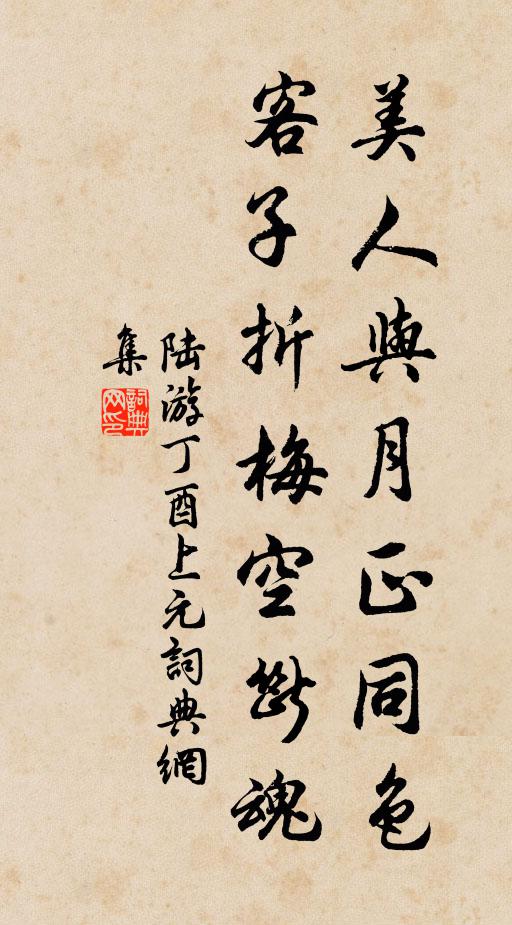 美人與月正同色
客子折梅空斷魂
陆游丁酉上元詞典網
集
詞典
网印